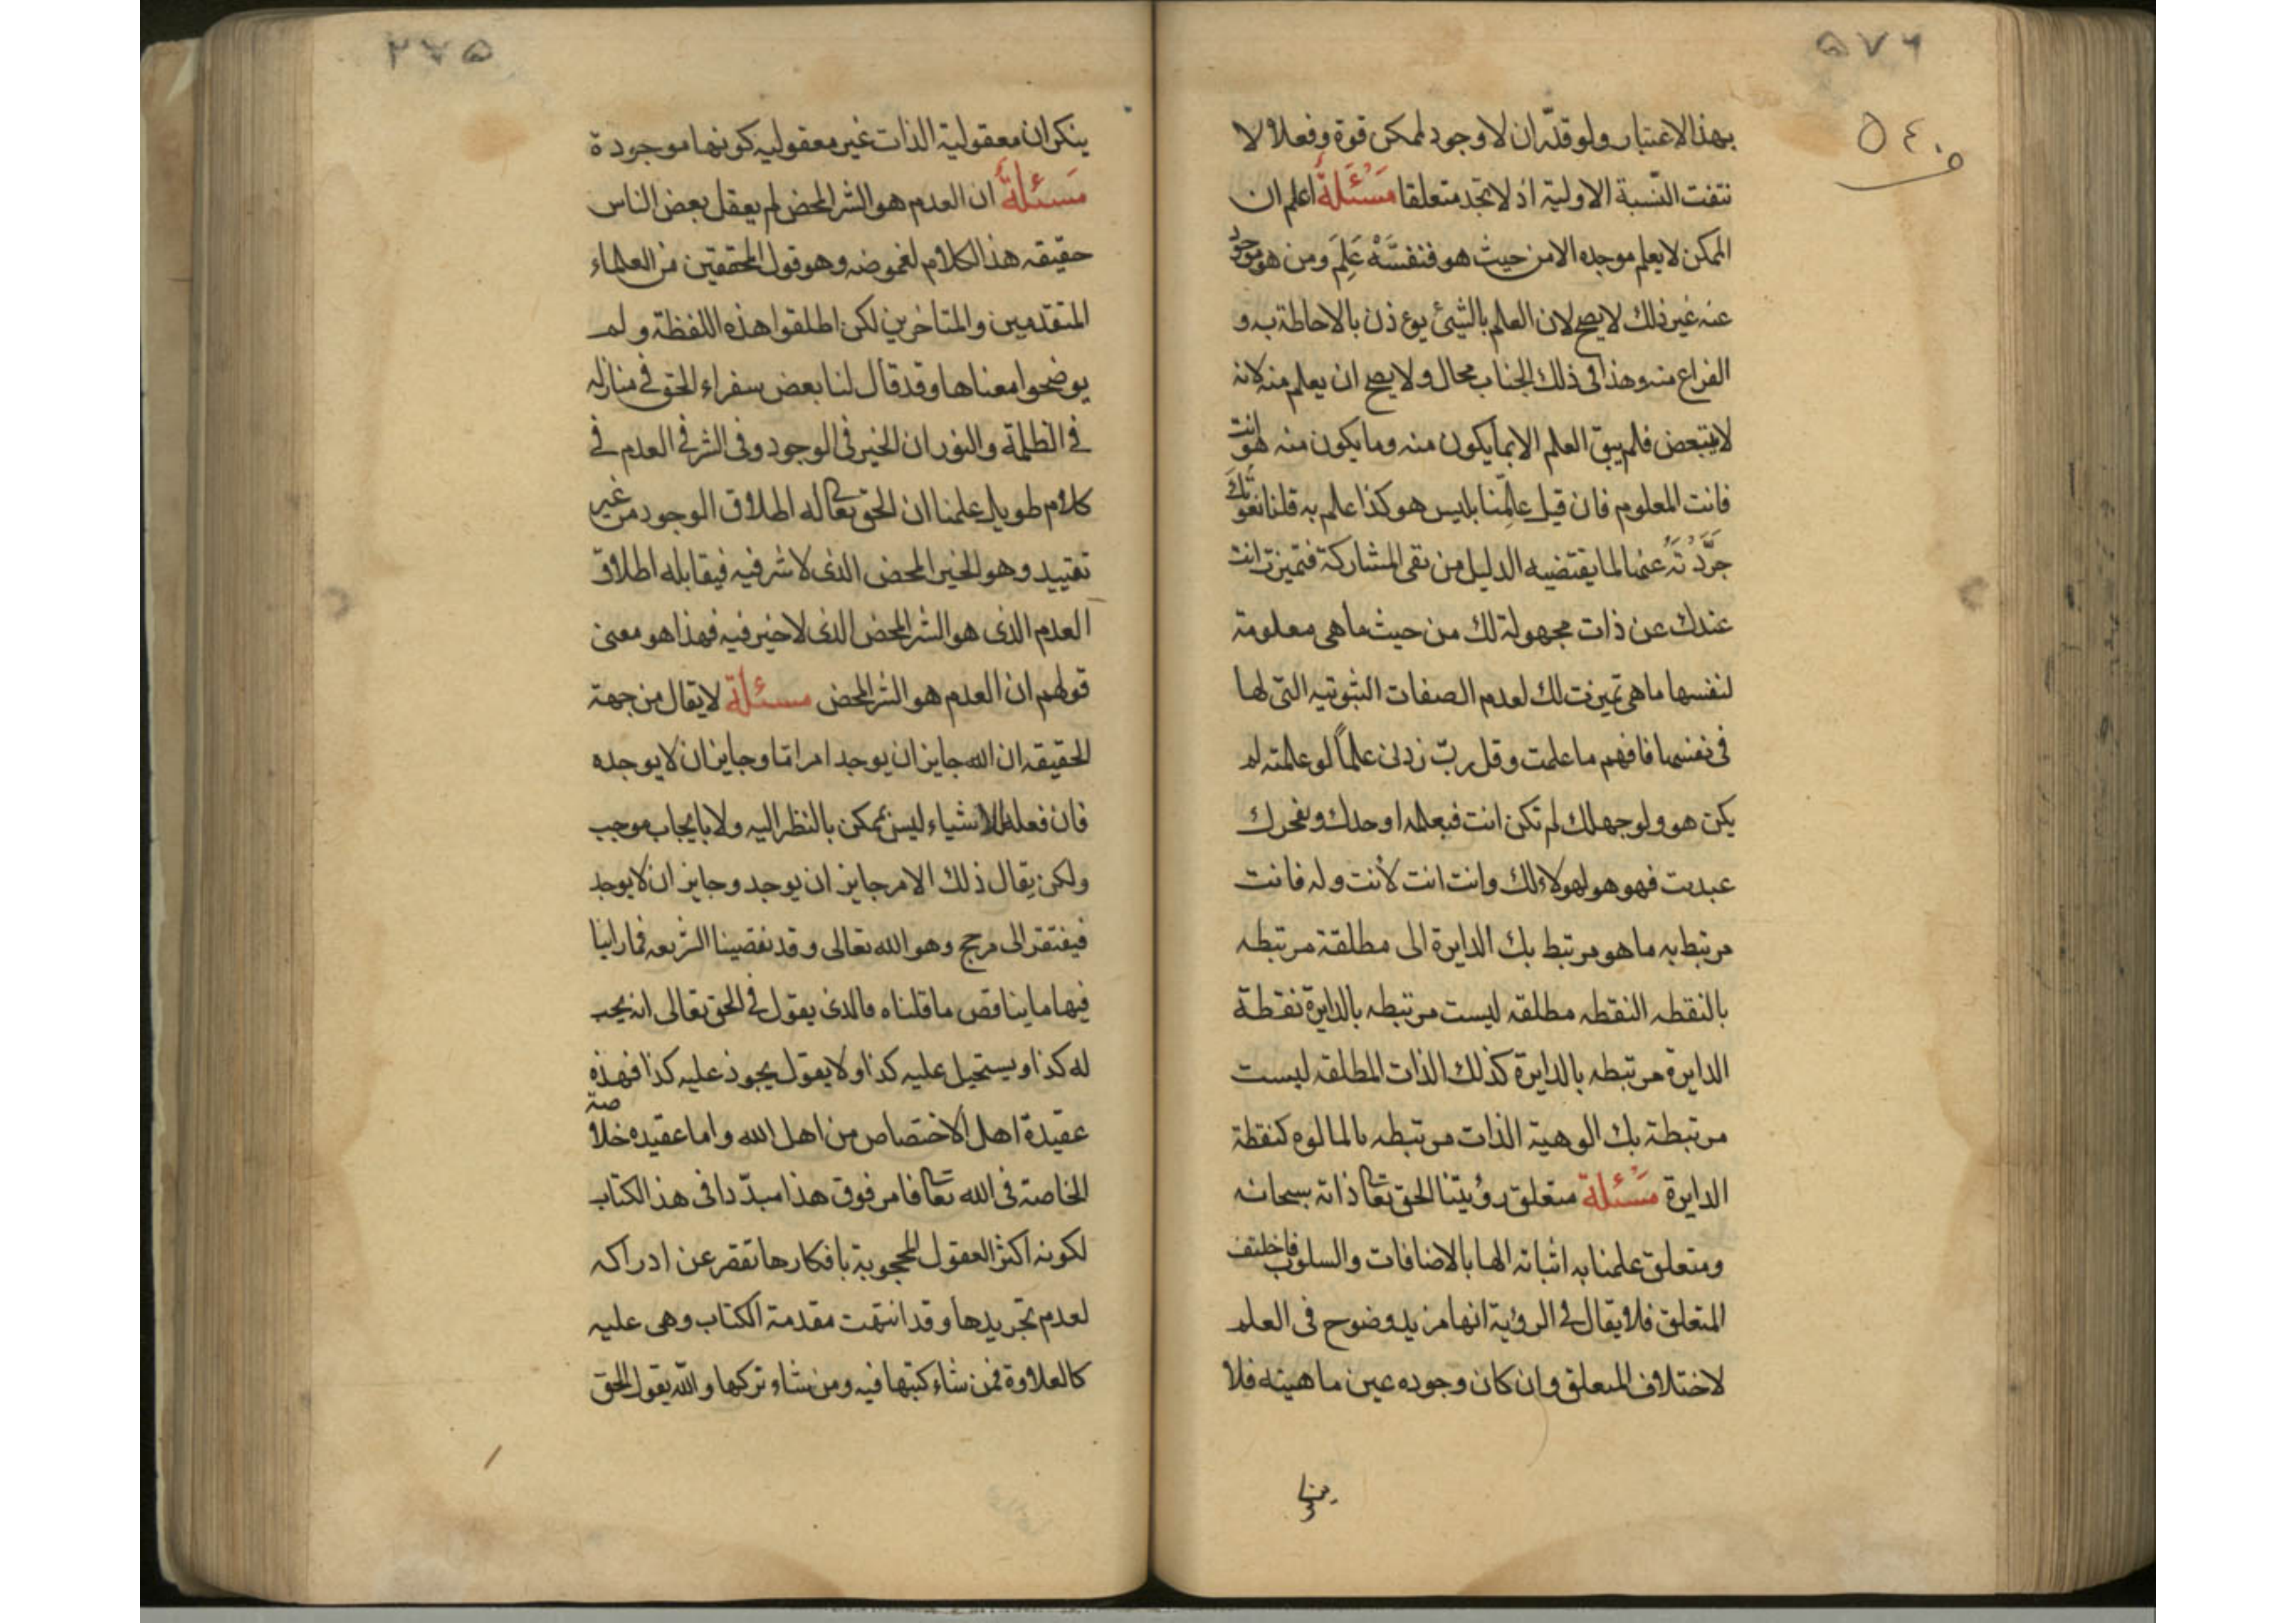 ٥٧٦
٥٤٠
بهذا الاعتبار ولو قدّر ان لا وجود لممكن قوة وفعلا لا
نتفت النّسبة الاولية اذ لا تجد متعلقا مَسْئَلةٌ اعلم ان
الممكن لا يعلم موجده الا من حيث هو فنفسَهُ عَلِمَ ومن هو موجود
عنه غير ذلك لا يصح لان العلم بالشيئ يوءذن بالاحاطة به و
الفراغ منه وهذا في ذلك الجناب محال ولا يصح ان يعلم منه لانه
لا يتبعض فلم يبق العلم الا بما يكون منه وما يكون منه هو انت
فانت المعلوم فان قيل علِمْنا بليس هو كذا علم به قلنا نعوتك
جَرَّدْتَهُ عنها لما يقتضيه الدليل من نفى المشاركة فتميزت انت
عندك عن ذات مجهولة لك من حيث ما هى معلومة
لنفسها ما هى تميزت لك لعدم الصفات الثبوتيه التى لها
فى نفسها فافهم ما علمت وقل ربّ زدنى علماً لو علمته لم
يكن هو ولو جهلك لم تكن انت فبعلمه اوجدك وبعجزك
عبدت فهو هو لهو لا لك وانت انت لأنت وله فانت
مرتبط به ما هو مرتبط بك الدايرة الى مطلقة مرتبطه
بالنقطه النقطه مطلقه ليست مرتبطه بالدايرة نقطة
الدايرة مرتبطه بالدايرة كذلك الذات المطلقه ليست
مرتبطة بك الوهية الذات مرتبطه بالمالوه كنقطة
الدايرة مَسْئلة متعلق رؤيتنا الحق تعا ذاته سبحانه
ومتعلق علمنا به اثباته الها بالاضافات والسلوب فاختلف
المتعلق فلا يقال في الروية انها مزيد وضوح فى العلم
لاختلاف المتعلق وان كان وجوده عين ماهيته فلا
٢٧٥
ينكر ان معقولية الذات غير معقوليه كونها موجودة
مَسئلةٌ ان العدم هو الشر المحض لم يعقل بعض الناس
حقيقه هذا الكلام لغموضه وهو قول المحققين من العلماء
المتقدمين والمتاخرين لكن اطلقوا هذه اللفظة ولم
يوضحوا معناها وقد قال لنا بعض سفراء الحق في منازله
في الظلمة والنور ان الخير في الوجود وفى الشر في العدم في
كلام طويل علمنا ان الحق تعا له اطلاق الوجود من غير
تقييد وهو الخير المحض الذى لا شر فيه فيقابله اطلاق
العدم الذى هو الشر المحض الذى لا خير فيه فهذا هو معنى
قولهم ان العدم هو الشر المحض مسئلة لا يقال من جهة
الحقيقه ان الله جايز ان يوجد امرا ما وجايز ان لا يوجده
فان فعله للاشياء ليس بممكن بالنظر اليه ولا بايجاب موجب
ولكن يقال ذلك الامر جايز ان يوجد وجايز ان لا يوجد
فيفتقر الى مرجح وهو الله تعالى وقد تقصينا الشريعه فما راينا
فيها ما يناقض ما قلناه فالذى يقول في الحق تعالى انه يجب
له كذا ويستحيل عليه كذا ولا يقول يجوز عليه كذا فهذه
عقيدة اهل الاختصاص من اهل الله واما عقيده خلاصة
الخاصة فى الله تعا فامر فوق هذا مبدّدا فى هذا الكتاب
لكونه اكثر العقول المحجوبة بافكارها تقصر عن ادراكه
لعدم تجريدها وقد انتهت مقدمة الكتاب وهى عليه
كالعلاوة فمن شاء كتبها فيه ومن شاء تركها والله يقول الحق